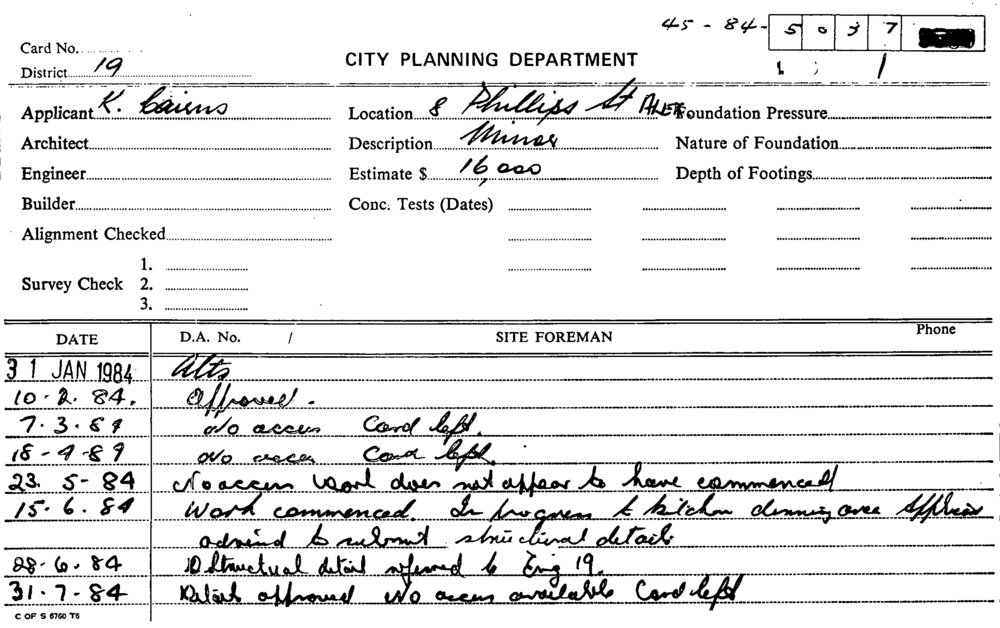 45 - 84 - 5037
Card No.
District 19
CITY PLANNING DEPARTMENT
Applicant K. Cairns
Location 8 Phillips St
Foundation Pressure
Architect
Description Minor
Nature of Foundation
Engineer
Estimate $ 16,000
Depth of Footings
Builder
Conc. Tests (Dates)
Alignment Checked
Survey Check 1.
2.
3.
DATE D.A. No. / SITE FOREMAN Phone
31 JAN 1984 Alts
10-2.84. Approved.
7.3.84 No access Card left.
18-4-84 No access Card left.
23.5-84 No access Work does not appear to have commenced
15.6.84 Work commenced. In progress to kitchen dinning area
advised to submit structural details
28-6.84 Structural detail referred to Eng 19.
31.7-84 Details approved No access available Card left
C OF S 6760 T6